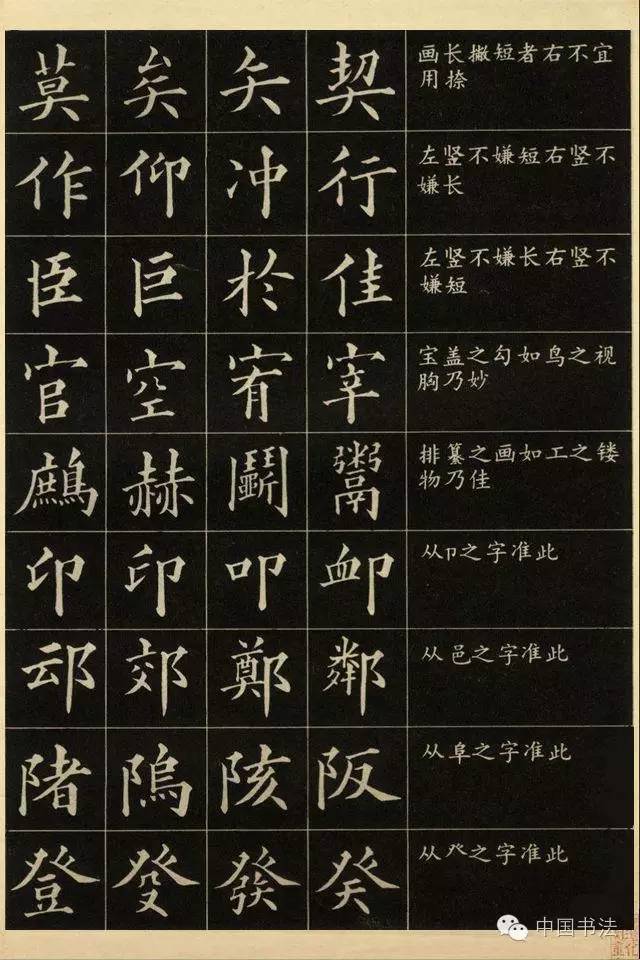 莫 矣 矢 契 画长撇短者右不宜
用捺
作 仰 冲 行 左竖不嫌短右竖不
嫌长
臣 巨 於 佳 左竖不嫌长右竖不
嫌短
官 空 宥 宰 宝盖之勾如鸟之视
胸乃妙
鷓 赫 鬬 鬻 排纂之画如工之镂
物乃佳
印 叩 卹 从卩之字准此
䢵 郊 鄭 鄰 从邑之字准此
陼 隖 陔 阪 从阜之字准此
登 癹 發 癸 从癶之字准此
中国书法